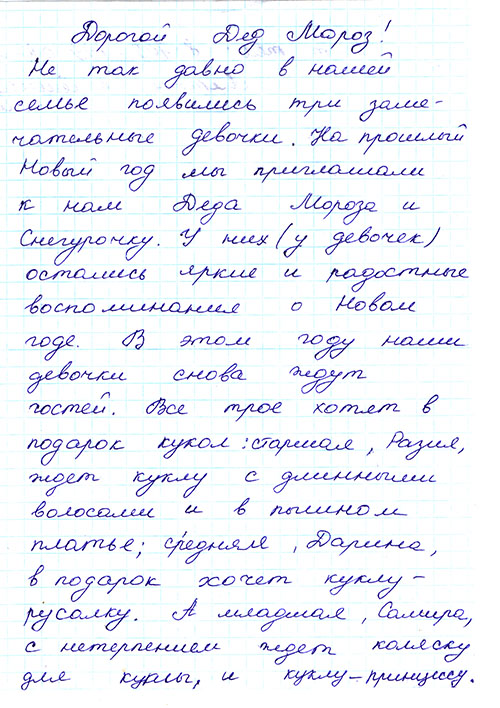 Дорогой Дед Мороз!
Не так давно в нашей
семье появились три заме-
чательные девочки. На прошлый
Новый год мы приглашали
к нам Деда Мороза и
Снегурочку. У них (у девочек)
остались яркие и радостные
воспоминания о Новом
годе. В этом году наши
девочки снова ждут
гостей. Все трое хотят в
подарок кукол: старшая, Разия,
ждет куклу с длинными
волосами и в пышном
платье; средняя, Дарина,
в подарок хочет куклу-
русалку. А младшая, Самира,
с нетерпением ждет коляску
для куклы, и куклу-принцессу.